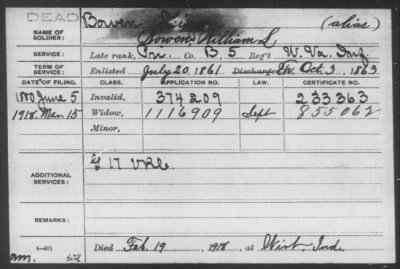 DEAD
Bowen
(alias)
NAME OF SOLDIER:
Bowen, William L.
SERVICE:
Late rank, Co. B, 5 Reg't W. Va. Inf
TERM OF SERVICE:
Enlisted July 20, 1861 Discharged Oct. 3, 1863
DATE OF FILING. CLASS. APPLICATION NO. LAW. CERTIFICATE NO.
1880 June 5 Invalid, 374209 233363
1918. Mar. 15 Widow, 1116909 Sept 855062
Minor,
ADDITIONAL SERVICES:
G 17 VRC.
REMARKS:
Died Feb. 19, 1918 at Wirt, Ind.